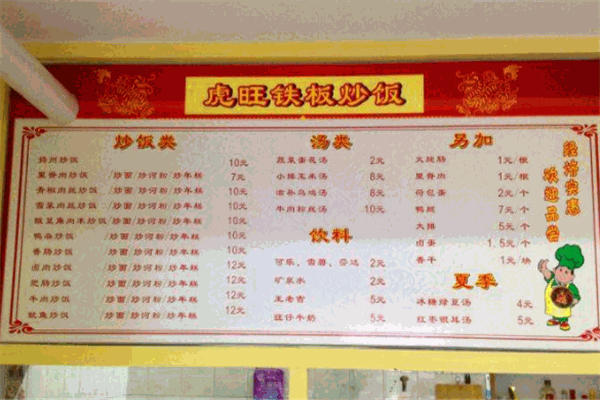 虎旺铁板炒饭
炒饭类
扬州炒饭 10元
里脊肉炒饭 /炒面/炒河粉/炒年糕 7元
青椒肉丝炒饭 /炒面/炒河粉/炒年糕 10元
雪菜肉丝炒饭 /炒面/炒河粉/炒年糕 10元
酸豆角肉末炒饭 /炒面/炒河粉/炒年糕 10元
鸭杂炒饭 /炒面/炒河粉/炒年糕 10元
香肠炒饭 /炒面/炒河粉/炒年糕 10元
卤肉炒饭 /炒面/炒河粉/炒年糕 12元
肥肠炒饭 /炒面/炒河粉/炒年糕 12元
牛肉炒饭 /炒面/炒河粉/炒年糕 12元
鱿鱼炒饭 /炒面/炒河粉/炒年糕 12元
汤类
蔬菜蛋花汤 2元
小排玉米汤 8元
滋补乌鸡汤 8元
牛肉粉丝汤 10元
饮料
可乐、雪碧、芬达 2元
矿泉水 2元
王老吉 5元
旺仔牛奶 5元
另加
火腿肠 1元/根
里脊肉 1元/根
荷包蛋 2元/个
鸭腿 7元/个
大排 5元/个
卤蛋 1.5元/个
香干 1元/块
夏季
冰糖绿豆汤 4元
红枣银耳汤 5元
经济实惠
欢迎品尝